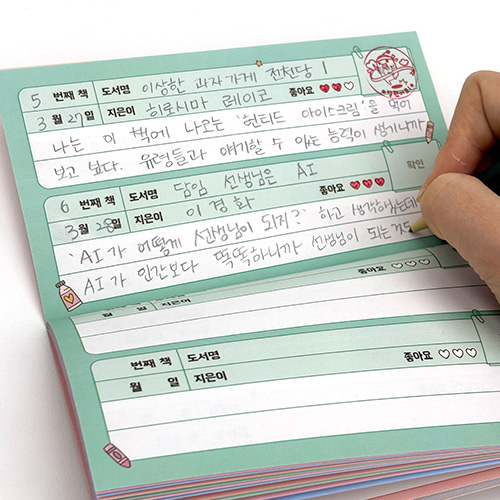 5 번째 책 도서명 이상한 과자 가게 전천당 1
3월 27일 지은이 히로시마 레이코 좋아요
나는 이 책에 나오는 '헌티드 아이스크림'을 먹어
보고 싶다. 유령들과 얘기할 수 있는 능력이 생기니까
6 번째 책 도서명 담임 선생님은 AI 확인
3월 28일 지은이 이경화 좋아요
'AI가 어떻게 선생님이 되지?' 하고 생각하는데
AI가 인간보다 똑똑하니까 선생님이 되는거도
월 일 지은이 좋아요
번째 책 도서명
월 일 지은이 좋아요